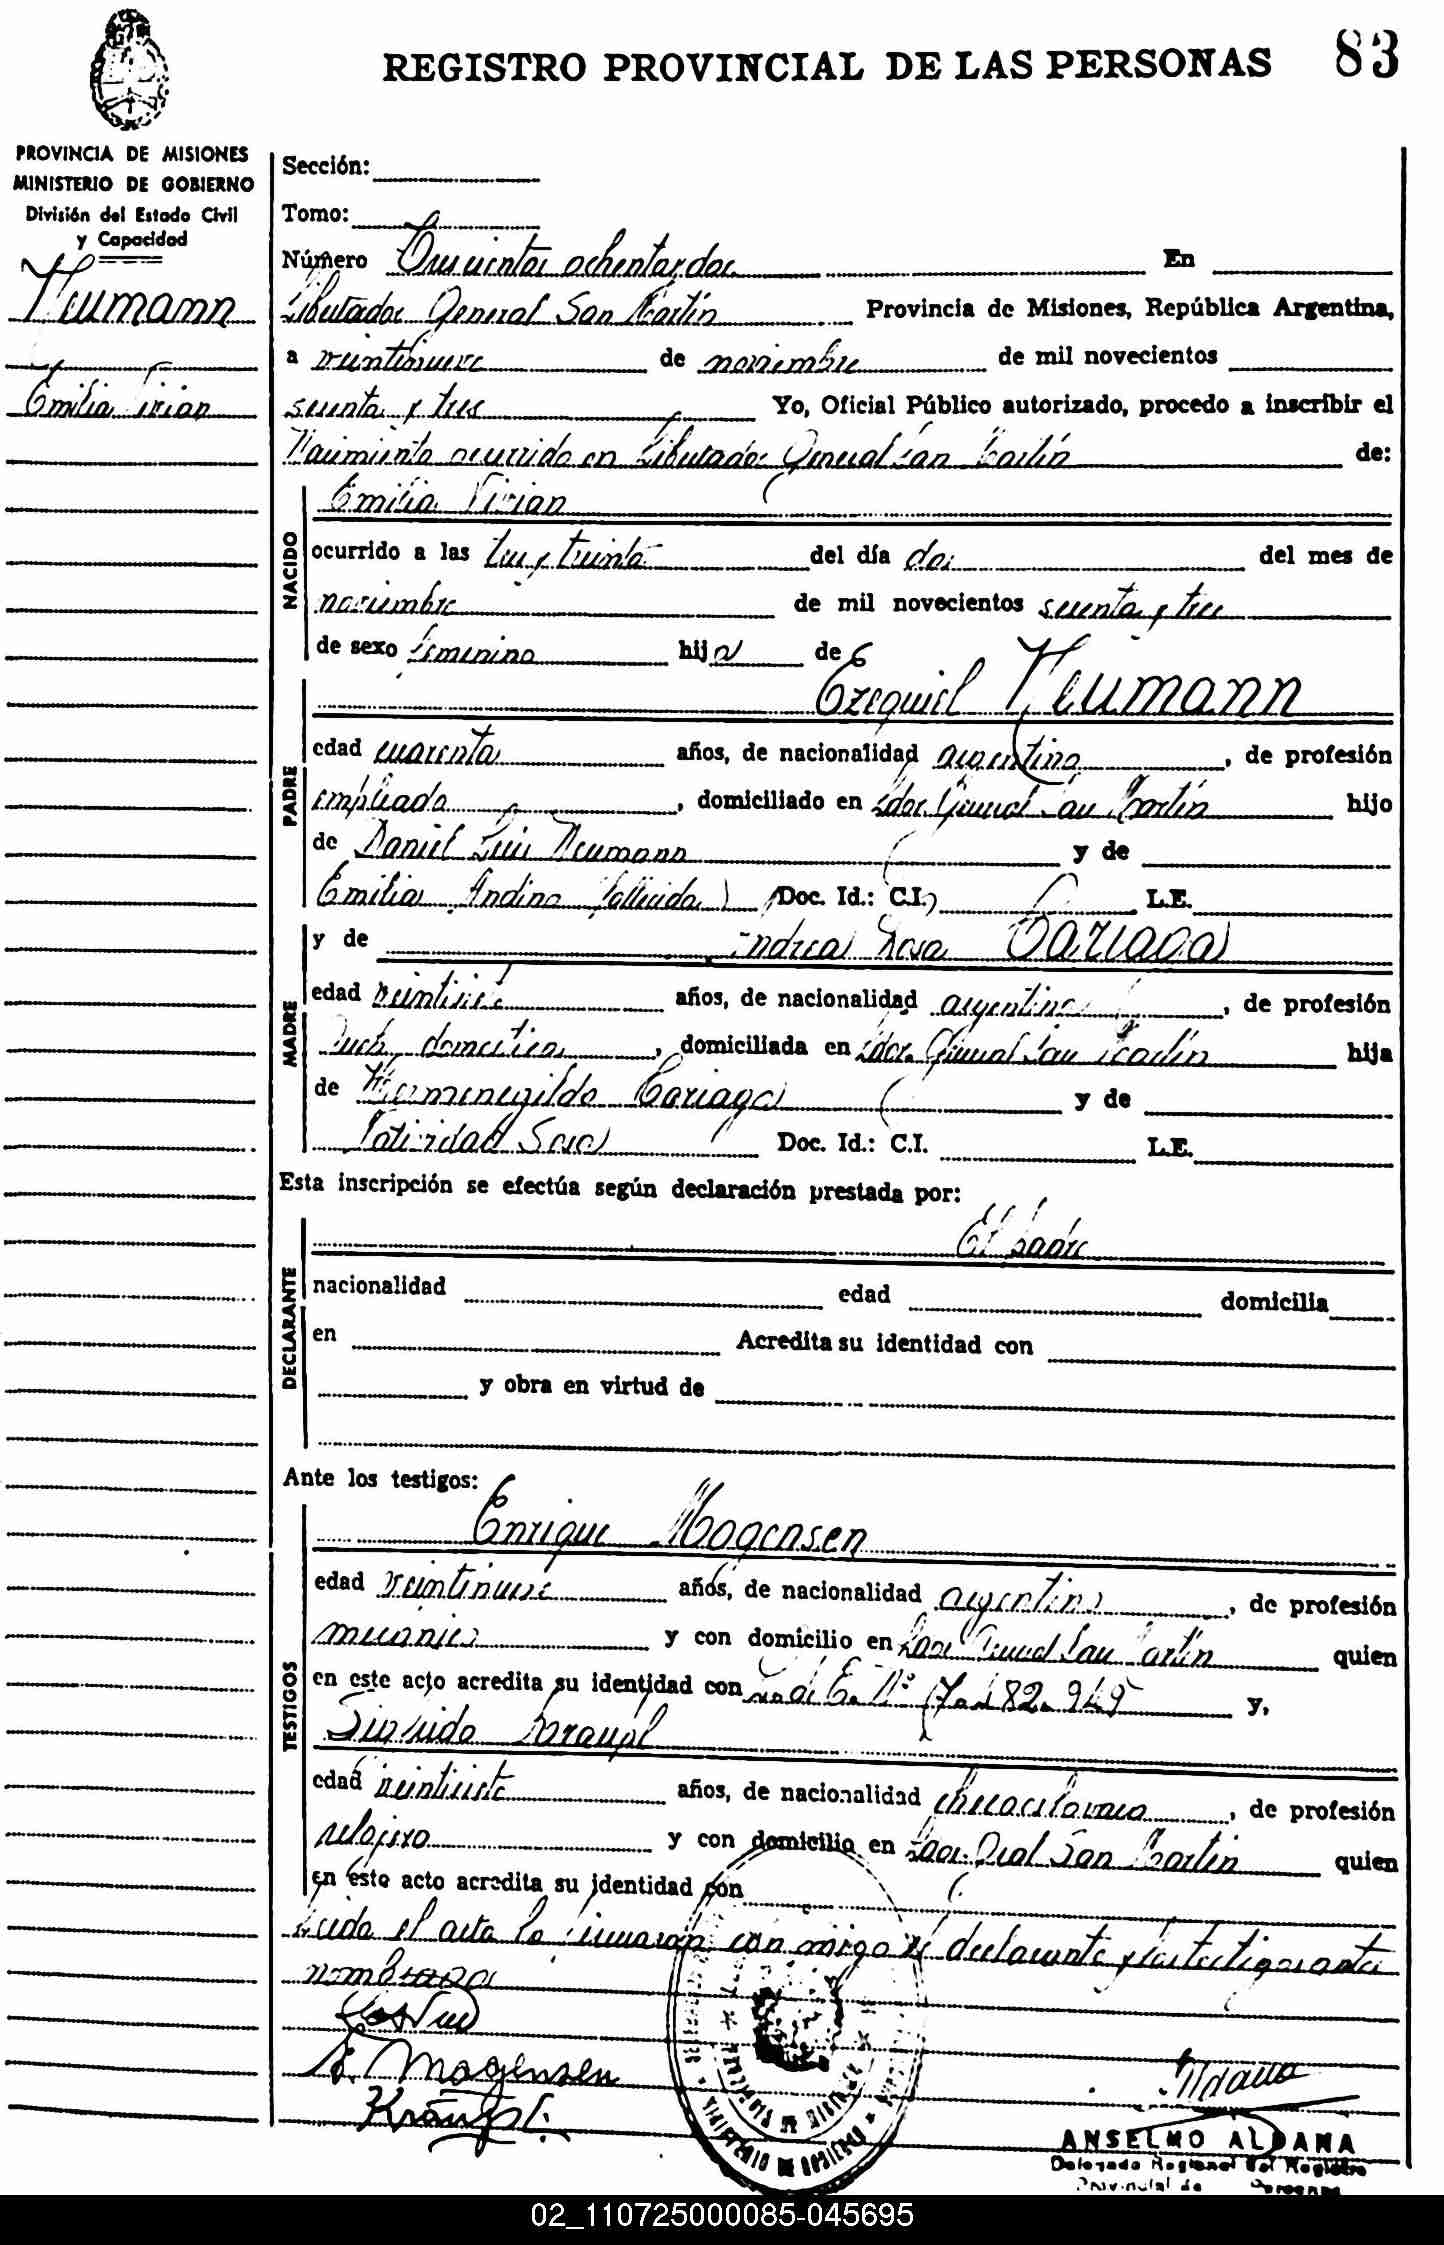 REGISTRO PROVINCIAL DE LAS PERSONAS 83
PROVINCIA DE MISIONES
MINISTERIO DE GOBIERNO
División del Estado Civil
y Capacidad
Neumann
Emilia Vivian
Sección:
Tomo:
Número ochenta y dos En
Libertador General San Martín Provincia de Misiones, República Argentina,
a veintinueve de noviembre de mil novecientos
sesenta y tres Yo, Oficial Público autorizado, procedo a inscribir el
Nacimiento ocurrido en Libertador General San Martín de:
NACIDO
Emilia Vivian
ocurrido a las tres y treinta del día dos del mes de
noviembre de mil novecientos sesenta y tres
de sexo femenino hija de
Ezequiel Neumann
PADRE
edad cuarenta años, de nacionalidad argentino, de profesión
empleado, domiciliado en Ldor. General San Martín hijo
de Daniel Luis Neumann y de
Emilia Andino (fallecida) Doc. Id.: C.I. L.E.
MADRE
y de Andrea Rosa Cariaga
edad años, de nacionalidad argentina, de profesión
Queh. domesticos, domiciliada en Ldor. General San Martín hija
de Hermenegildo Cariaga y de
Natividad Sosa Doc. Id.: C.I. L.E.
Esta inscripción se efectúa según declaración prestada por:
DECLARANTE
El padre
nacionalidad edad domicilia
en Acredita su identidad con
y obra en virtud de
Ante los testigos:
TESTIGOS
Enrique Mogensen
edad veintinueve años, de nacionalidad argentino, de profesión
mecánico y con domicilio en Ldor General San Martín quien
en este acto acredita su identidad con L. de E. Nº 82.949 y,
edad veintisiete años, de nacionalidad checoeslovaco, de profesión
relojero y con domicilio en Ldor. Gral San Martín quien
en este acto acredita su identidad con
Leida el acta la firmaron conmigo el declarante y los testigos antes
nombrados
E. Mogensen
ANSELMO ALDANA
Delegado Regional del Registro
Provincial de Personas
MINISTERIO DE GOBIERNO
02_110725000085-045695